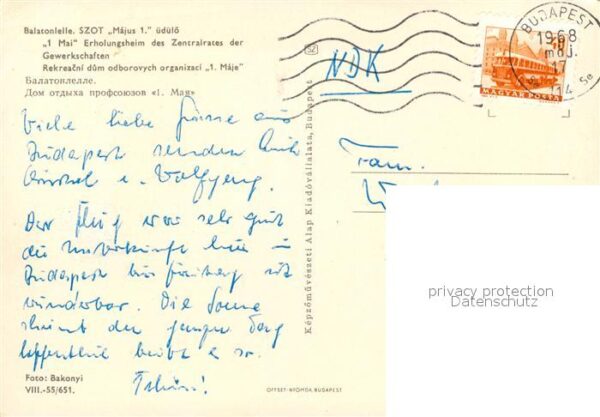 Balatonlelle. SZOT „Május 1." üdülő
„1 Mai" Erholungsheim des Zentralrates der
Gewerkschaften
Rekreační dům odborovych organizací „1. Máje"
Балатонлелле.
Дом отдыха профсоюзов «1. Мая»
Viele liebe Grüsse aus
Budapest senden Euch
u. Wolfgang.
Der Flug war sehr gut
die Unterkunft hier in
Budapest bis Freitag ist
wunderbar. Die Sonne
scheint den ganzen Tag
hoffentlich bleibt es so.
Tschüss!
Foto: Bakonyi
VIII.-55/651.
OFFSET-NYOMDA BUDAPEST
Képzőművészeti Alap Kiadóvállalata, Budapest
SZ
NDK
Fam.
BUDAPEST
1968
MÁJ.
17
114
MAGYAR POSTA
privacy protection
Datenschutz